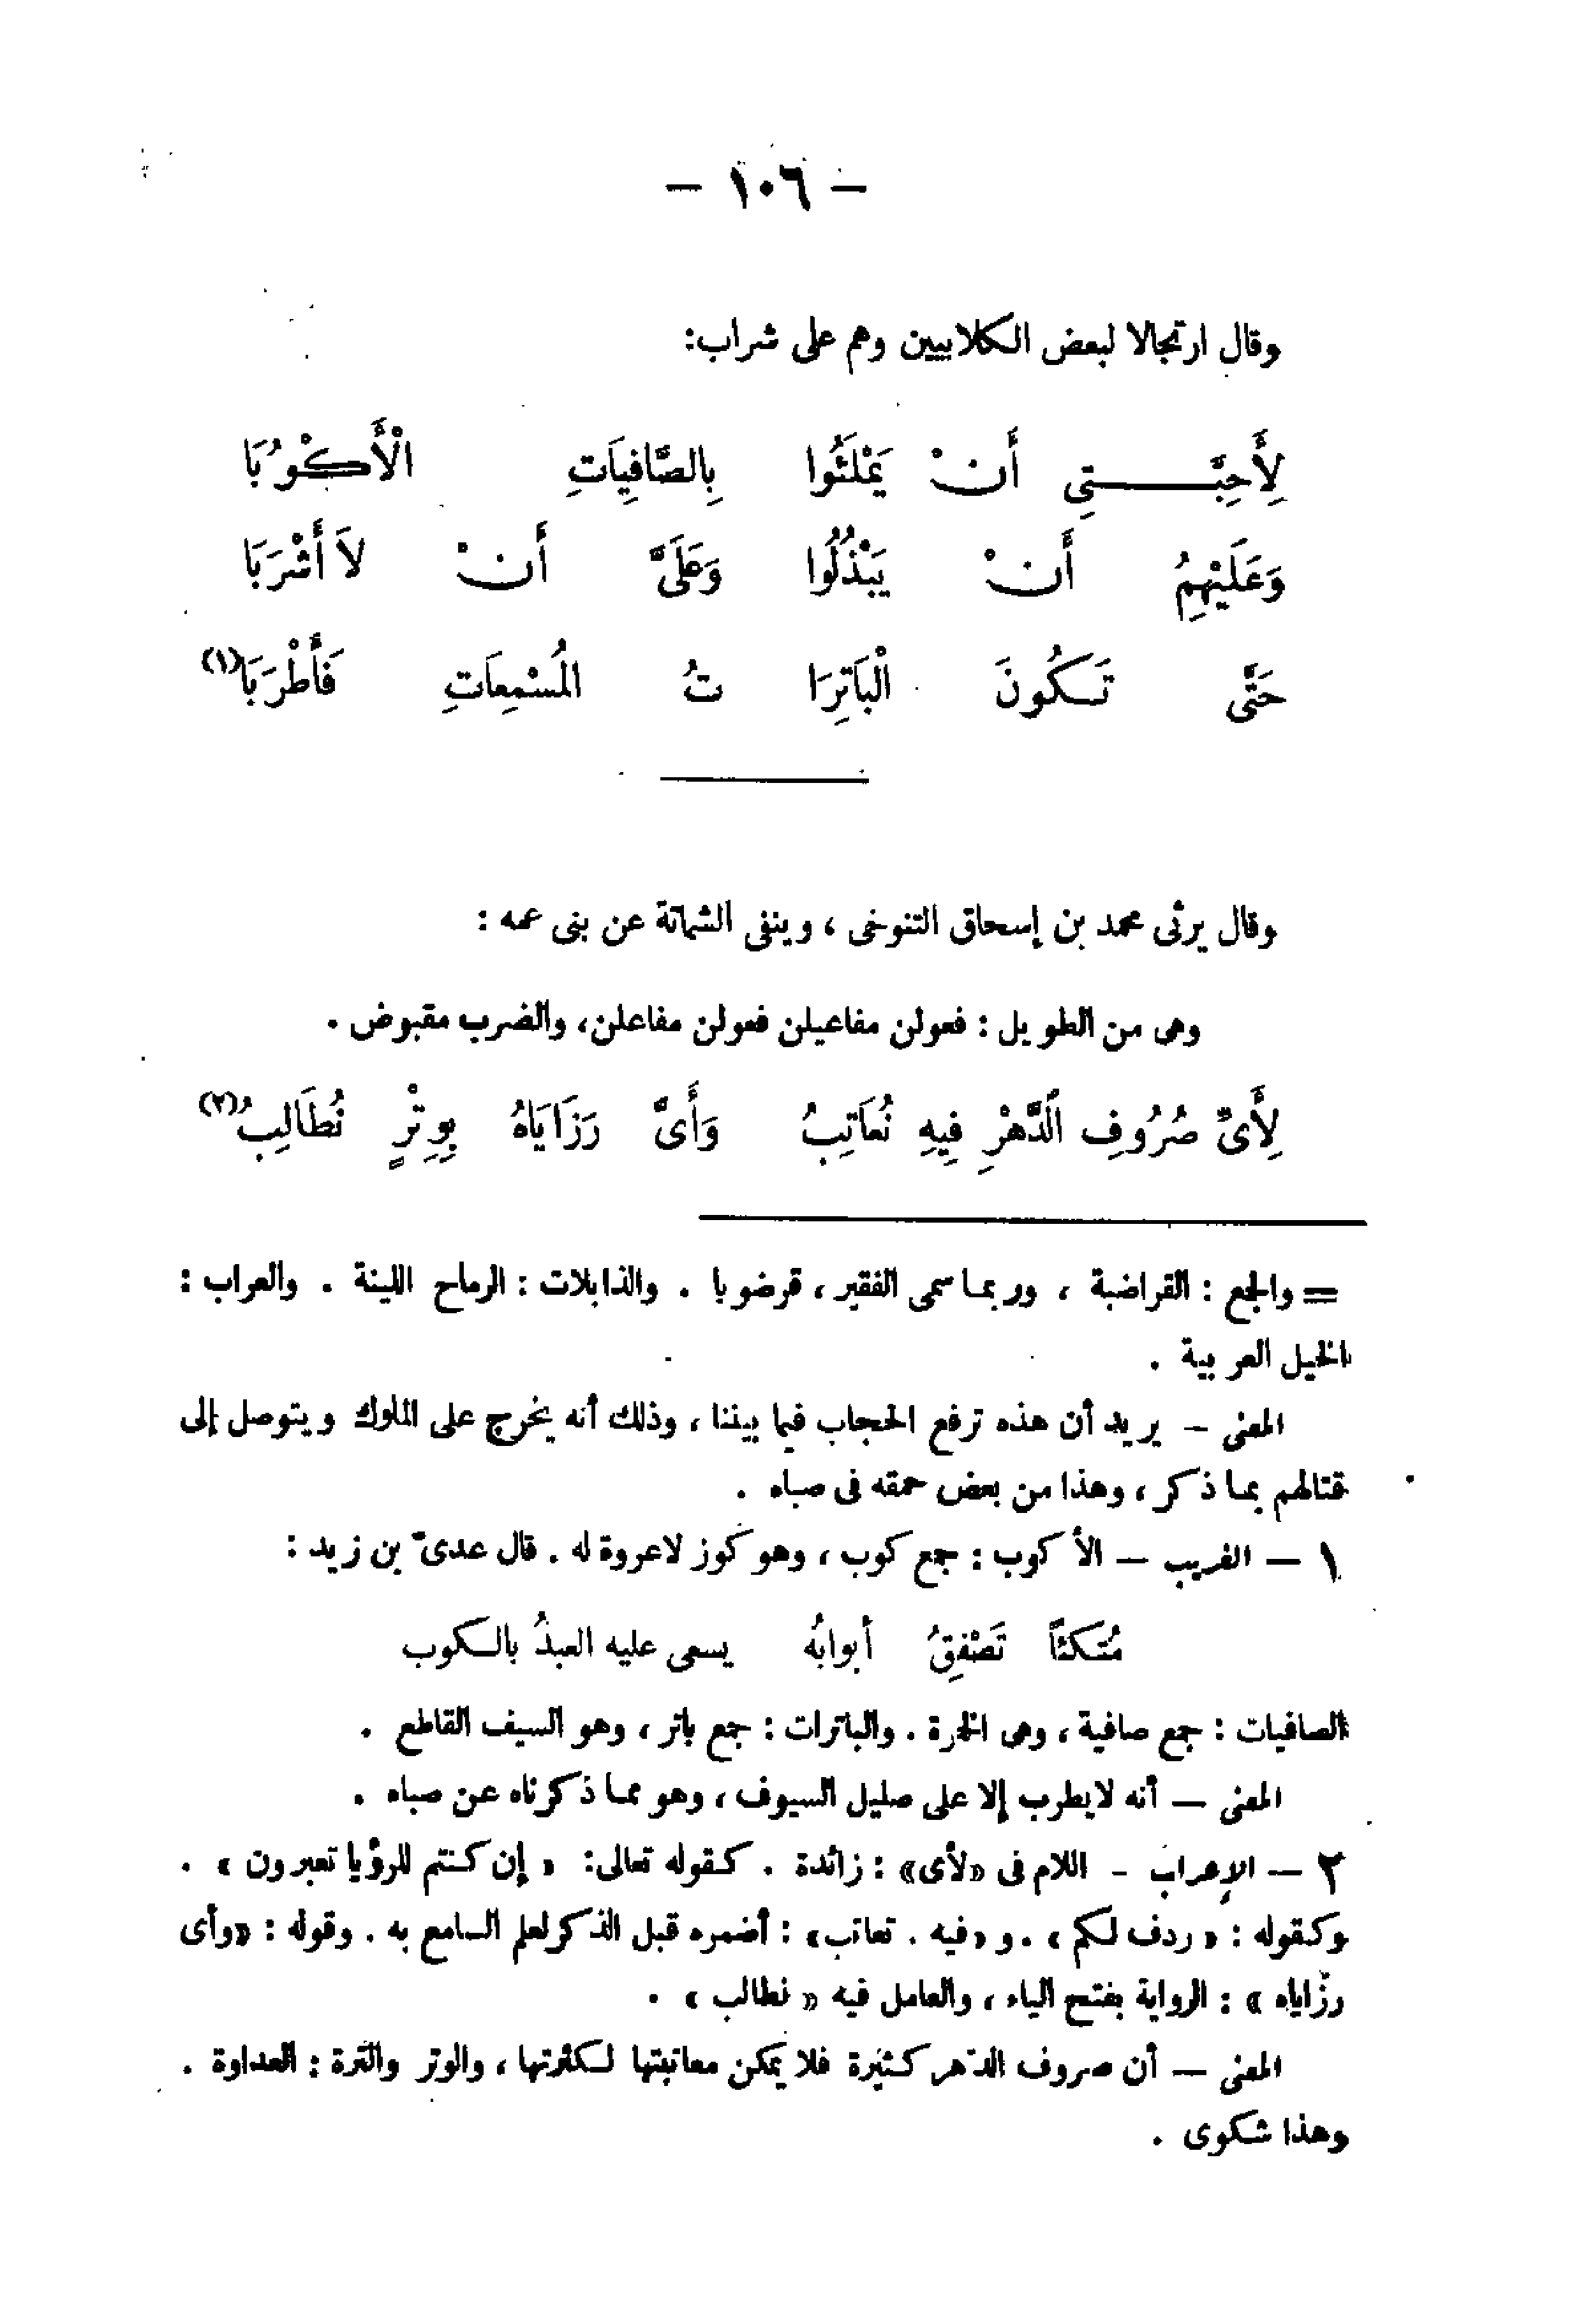 — ١٠٦ —
وقال ارتجالا لبعض الكلابيين وهم على شراب:
لِأَحِبَّتِى أَنْ يَمْلَئُوا بِالصَّافِيَاتِ الْأَكْوُبَا
وَعَلَيْهِمُ أَنْ يَبْذُلُوا وَعَلَىَّ أَنْ لاَ أَشْرَبَا
حَتَّى تَكُونَ الْبَاتِرَا تُ المُسْمِعَاتِ فَأَطْرَبَا(١)
وقال يرثى محمد بن إسحاق التنوخى ، وينفى الشماتة عن بنى عمه :
وهى من الطويل : فعولن مفاعيلن فعولن مفاعلن، والضرب مقبوض .
لِأَىِّ صُرُوفِ الَدَّهْرِ فِيهِ نُعَاتِبُ وَأَىَّ رَزَايَاهُ بِوِتْرٍ نُطَالِبُ(٢)
= والجمع : القراضبة ، وربما سمى الفقير ، قرضوبا . والذابلات : الرماح اللينة . والعراب :
الخيل العربية .
المعنى – يريد أن هذه ترفع الحجاب فيما بيننا ، وذلك أنه يخرج على الملوك ويتوصل إلى
قتالهم بما ذكر ، وهذا من بعض حمقه فى صباه .
١ — الغريب — الأكوب : جمع كوب ، وهو كوز لاعروة له . قال عدىّ بن زيد :
مُتَكئاً تَصْفِقُ أبوابُه يسعى عليه العبدُ بالكوب
الصافيات : جمع صافية ، وهى الخمرة . والباترات : جمع باتر ، وهو السيف القاطع .
المعنى — أنه لايطرب إلا على صليل السيوف ، وهو مما ذكرناه عن صباه .
٢ — الإعراب – اللام فى «لأى» : زائدة . كقوله تعالى: « إن كنتم للرؤيا تعبرون » .
وكقوله : « ردف لكم » . و «فيه . تعاتب» : أضمره قبل الذكر لعلم السامع به . وقوله : «وأى
رزاياه » : الرواية بفتح الياء ، والعامل فيه « نطالب » .
المعنى — أن صروف الدّهر كثيرة فلا يمكن معاتبتها لكثرتها ، والوتر والتَرة : العداوة .
وهذا شكوى .